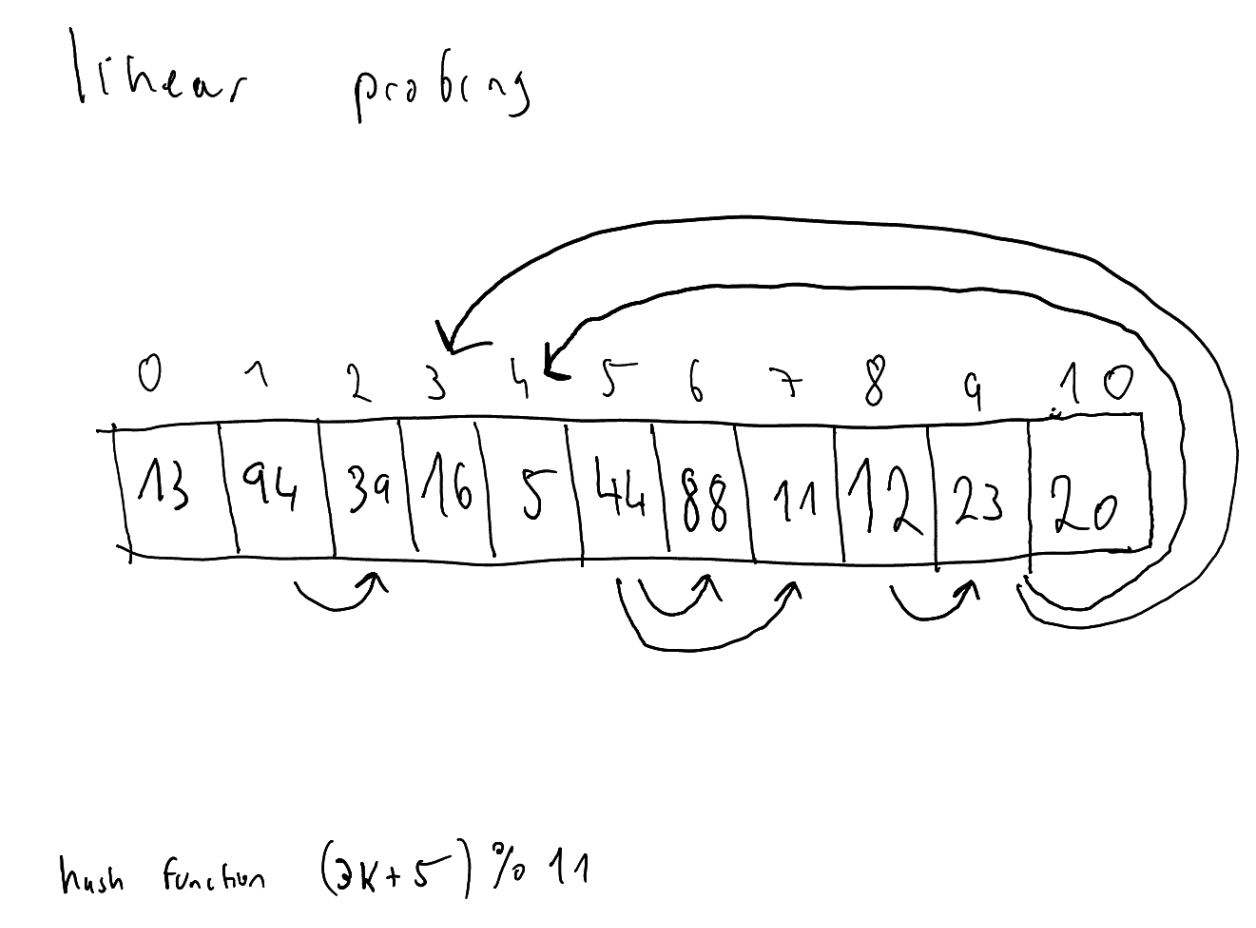 linear probing
0 1 2 3 4 5 6 7 8 9 10
13 94 39 16 5 44 88 11 12 23 20
hash function (3K+5)%11